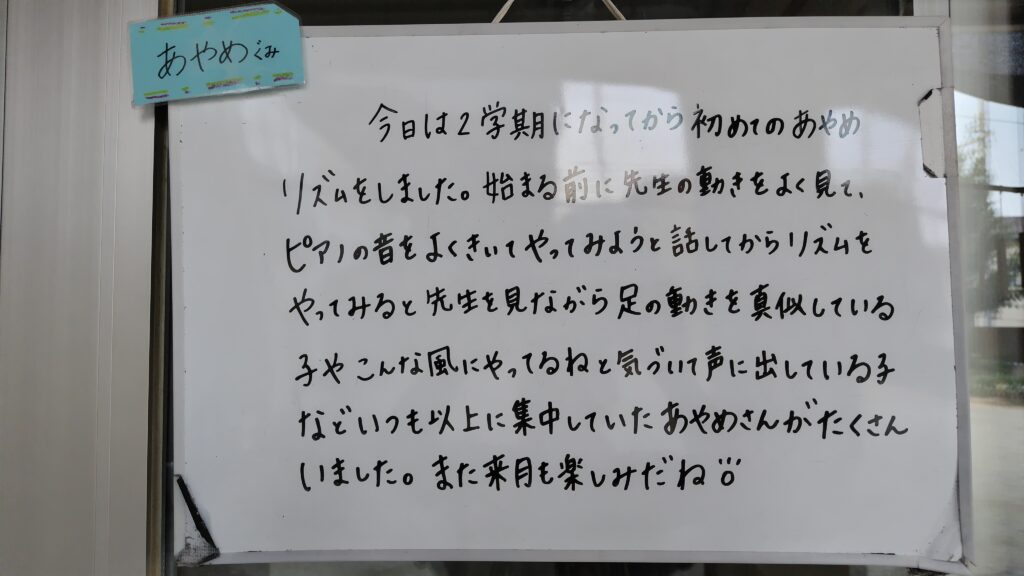 あやめぐみ
今日は2学期になってから初めてのあやめ
リズムをしました。始まる前に先生の動きをよく見て、
ピアノの音をよくきいてやってみようと話してからリズムを
やってみると先生を見ながら足の動きを真似している
子やこんな風にやってるねと気づいて声に出している子
などいつも以上に集中していたあやめさんがたくさん
いました。また来月も楽しみだね